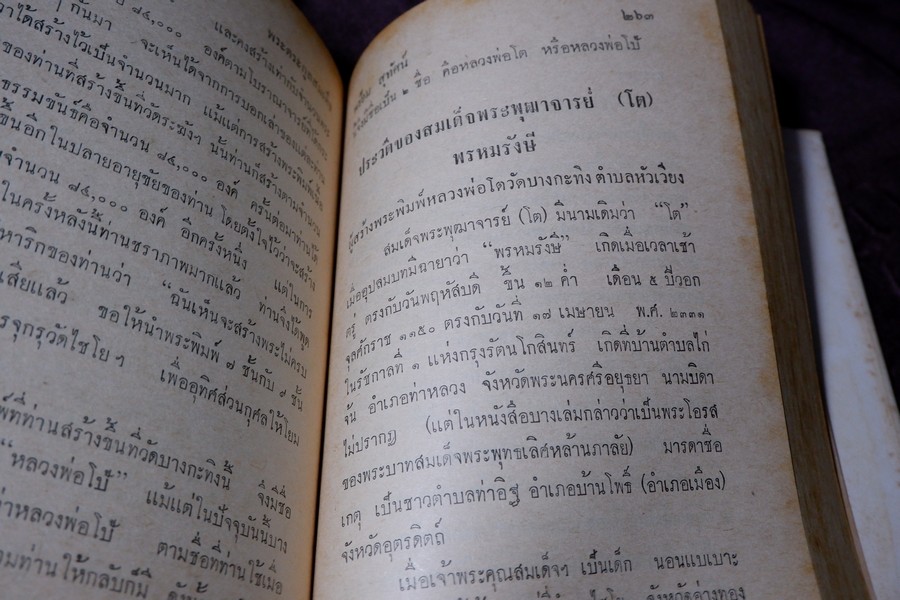 พระคะแนน
และคงสร้างเท่ากับจำนวนวัน
ๆ กันมา
๘๔,๐๐๐ องค์ตามโบราณาจารย์
ได้สร้างไว้เป็นจำนวนมาก แม้แต่การสร้างพระพิมพ์นั้น
จะเห็นได้จากการบอกเล่าของ
ของท่านที่สร้างขึ้นที่วัดระฆังฯ นั้นท่านก็สร้างตามจำนวน
ธรรมขันธ์คือจำนวน ๘๔,๐๐๐ องค์ ครั้นต่อมาท่านก็ได้
ขึ้นอีกในปลายอายุขัยของท่าน โดยตั้งใจไว้ว่าจะสร้าง
จำนวน ๘๔,๐๐๐ องค์ อีกครั้งหนึ่ง แต่ในการ
ในครั้งหลังนี้ท่านชราภาพมากแล้ว ท่านจึงได้พูด
หาริกของท่านว่า “ฉันเห็นจะสร้างพระไม่ครบ
เสียแล้ว ขอให้นำพระพิมพ์ ๗ ชั้นกับ ๙ ชั้น
รจุกรุวัดไชโยฯ เพื่ออุทิศส่วนกุศลให้โยม
พ์ที่ท่านสร้างขึ้นที่วัดบางกะทิงนี้ จึงมีชื่อ
“หลวงพ่อโป้” แม้แต่ในปัจจุบันนี้บาง
ว่าหลวงพ่อโป้ ตามชื่อที่ท่านใช้เมื่อ
ยมท่านให้กลับก็มี
๒๖๓
สุทัศน์
จึงมีชื่อเป็น ๒ ชื่อ คือหลวงพ่อโต หรือหลวงพ่อโป้
ประวัติของสมเด็จพระพุฒาจารย์ (โต)
พรหมรังษี
ผู้สร้างพระพิมพ์หลวงพ่อโตวัดบางกะทิง ตำบลหัวเวียง
สมเด็จพระพุฒาจารย์ (โต) มีนามเดิมว่า “โต”
เมื่ออุปสมบทมีฉายาว่า “พรหมรังษี” เกิดเมื่อเวลาเช้า
ตรู่ ตรงกับวันพฤหัสบดี ขึ้น ๑๒ ค่ำ เดือน ๕ ปีวอก
จุลศักราช ๑๑๕๐ ตรงกับวันที่ ๑๗ เมษายน พ.ศ. ๒๓๓๑
ในรัชกาลที่ ๑ แห่งกรุงรัตนโกสินทร์ เกิดที่บ้านตำบลไก่
จ้น อำเภอท่าหลวง จังหวัดพระนครศรีอยุธยา นามบิดา
ไม่ปรากฏ (แต่ในหนังสือบางเล่มกล่าวว่าเป็นพระโอรส
ของพระบาทสมเด็จพระพุทธเลิศหล้านภาลัย) มารดาชื่อ
เกตุ เป็นชาวตำบลท่าอิฐ อำเภอบ้านโพธิ์ (อำเภอเมือง)
จังหวัดอุตรดิตถ์
เมื่อเจ้าพระคุณสมเด็จฯ เป็นเด็ก นอนแบเบาะ
ไชโย จังหวัดอ่างทอง